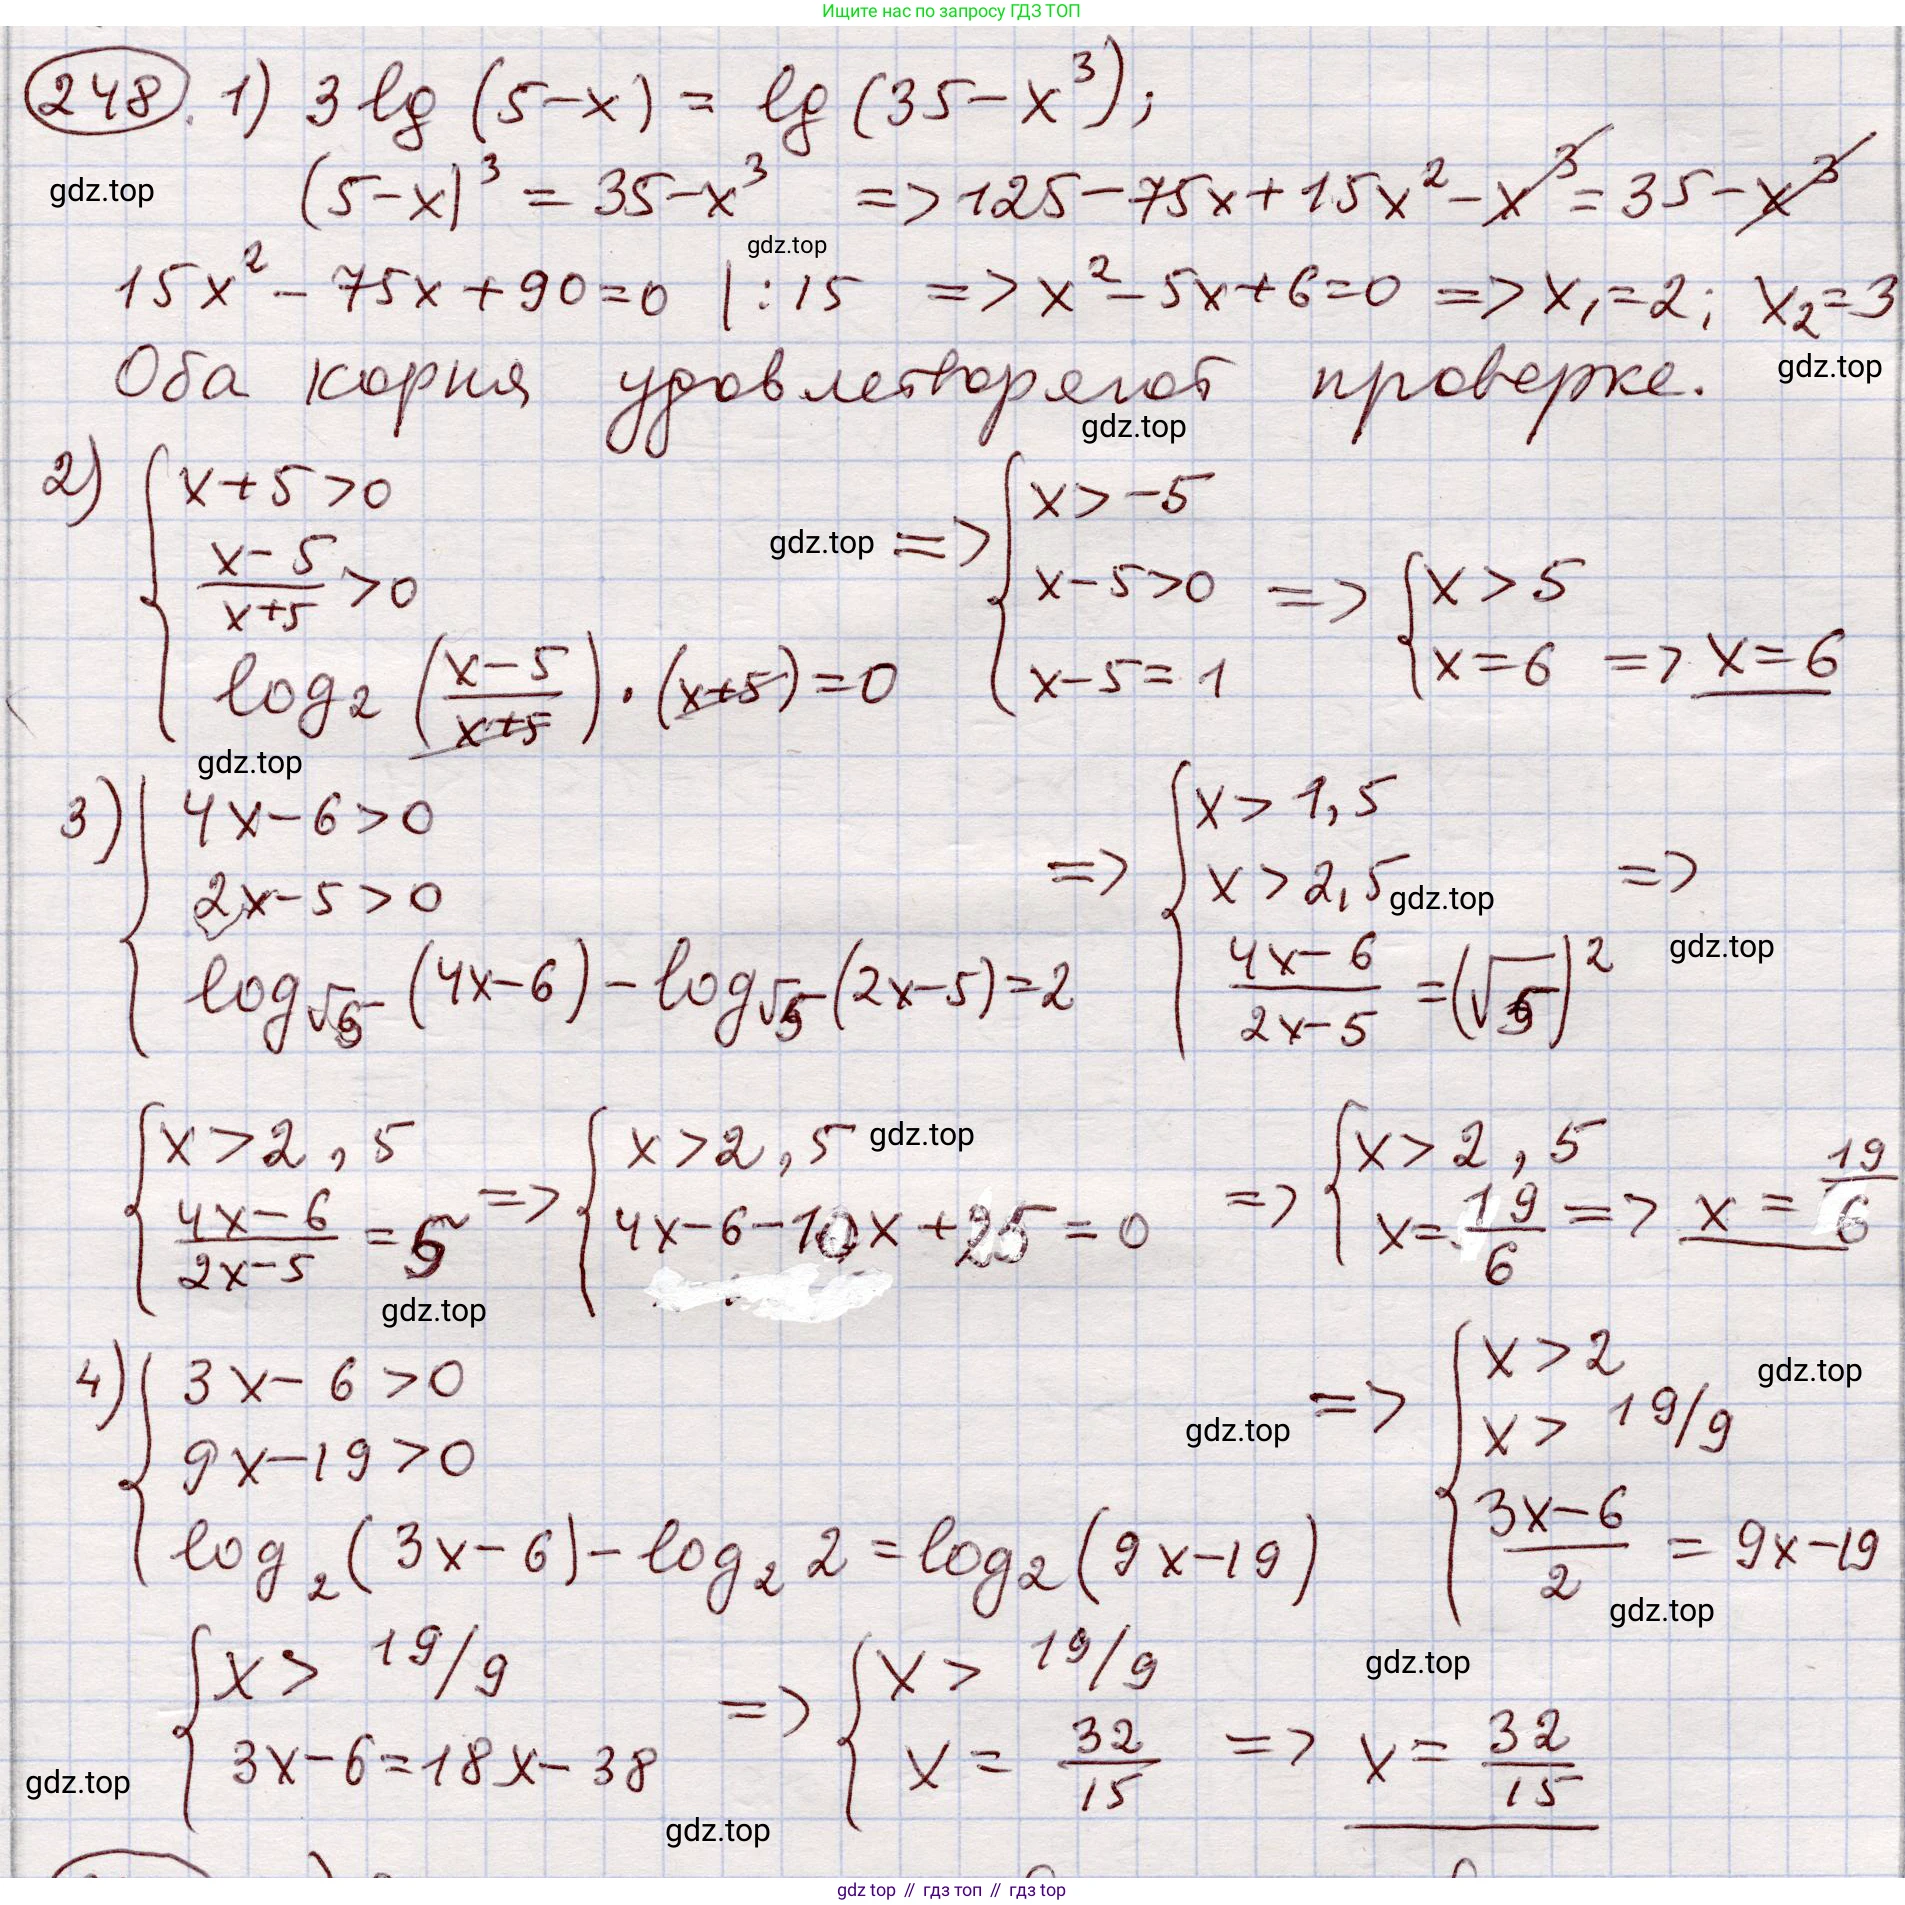 Ищите нас по запросу ГДЗ ТОП
248. 1) 3 lg (5-x) = lg (35-x³);
(5-x)³ = 35-x³ => 125-75x+15x²-x³=35-x³
gdz.top
gdz.top
15x²-75x+90=0 |:15 => x²-5x+6=0 => x₁=2; x₂=3
Оба корня удовлетворяют проверке.
gdz.top
gdz.top
2) { x+5>0
(x-5)/(x+5) >0
log₂ ((x-5)/(x+5))·(x+5)=0
gdz.top => { x>-5
x-5>0
x-5=1
=> { x>5
x=6 => x=6
gdz.top
3) { 4x-6>0
2x-5>0
log_√5 (4x-6) - log_√5 (2x-5)=2
=> { x>1,5
x>2,5
(4x-6)/(2x-5) =(√5)²
=>
gdz.top
gdz.top
{ x>2,5
(4x-6)/(2x-5) = 5
=> { x>2,5
4x-6-10x+25=0
=> { x>2,5
x=19/6 => x=19/6
gdz.top
gdz.top
4) { 3x-6>0
9x-19>0
log₂(3x-6)-log₂2=log₂(9x-19)
=> { x>2
x>19/9
(3x-6)/2 = 9x-19
gdz.top
gdz.top
gdz.top
{ x>19/9
3x-6=18x-38
=> { x>19/9
x= 32/15
=> x= 32/15
gdz.top
gdz.top
gdz.top
gdz top // гдз топ // гдз top